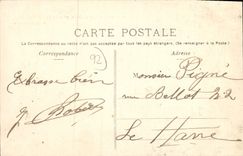 CARTE POSTALE
La Correspondance au recto n'est pas acceptée par tous les pays étrangers. (Se renseigner à la Poste)
Correspondance
Adresse
92
Embrasse bien
Monsieur Pigné
rue Bellot 22
Le Havre